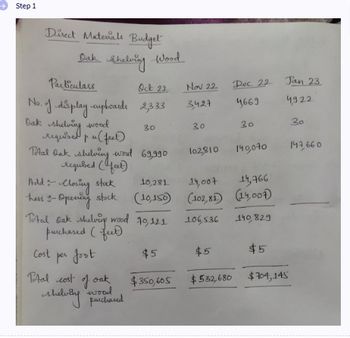 Step 1
Direct Materials Budget
Oak Shelving Wood
Particulars Oct 22 Nov 22 Dec 22 Jan 23
No. of display cupboards 2,333 3,427 4669 4922
Oak shelving wood required p u (feet) 30 30 30 30
Total Oak shelving wood required (feet) 69,990 102,810 140,070 147,660
Add :- Closing stock 10,281 14,007 14,766
Less :- Opening stock (10,150) (102,81) (14,007)
Total Oak shelving wood purchased (feet) 70,121 106,536 140,829
Cost per foot $5 $5 $5
Total cost of oak shelving wood purchased $350,605 $532,680 $704,145